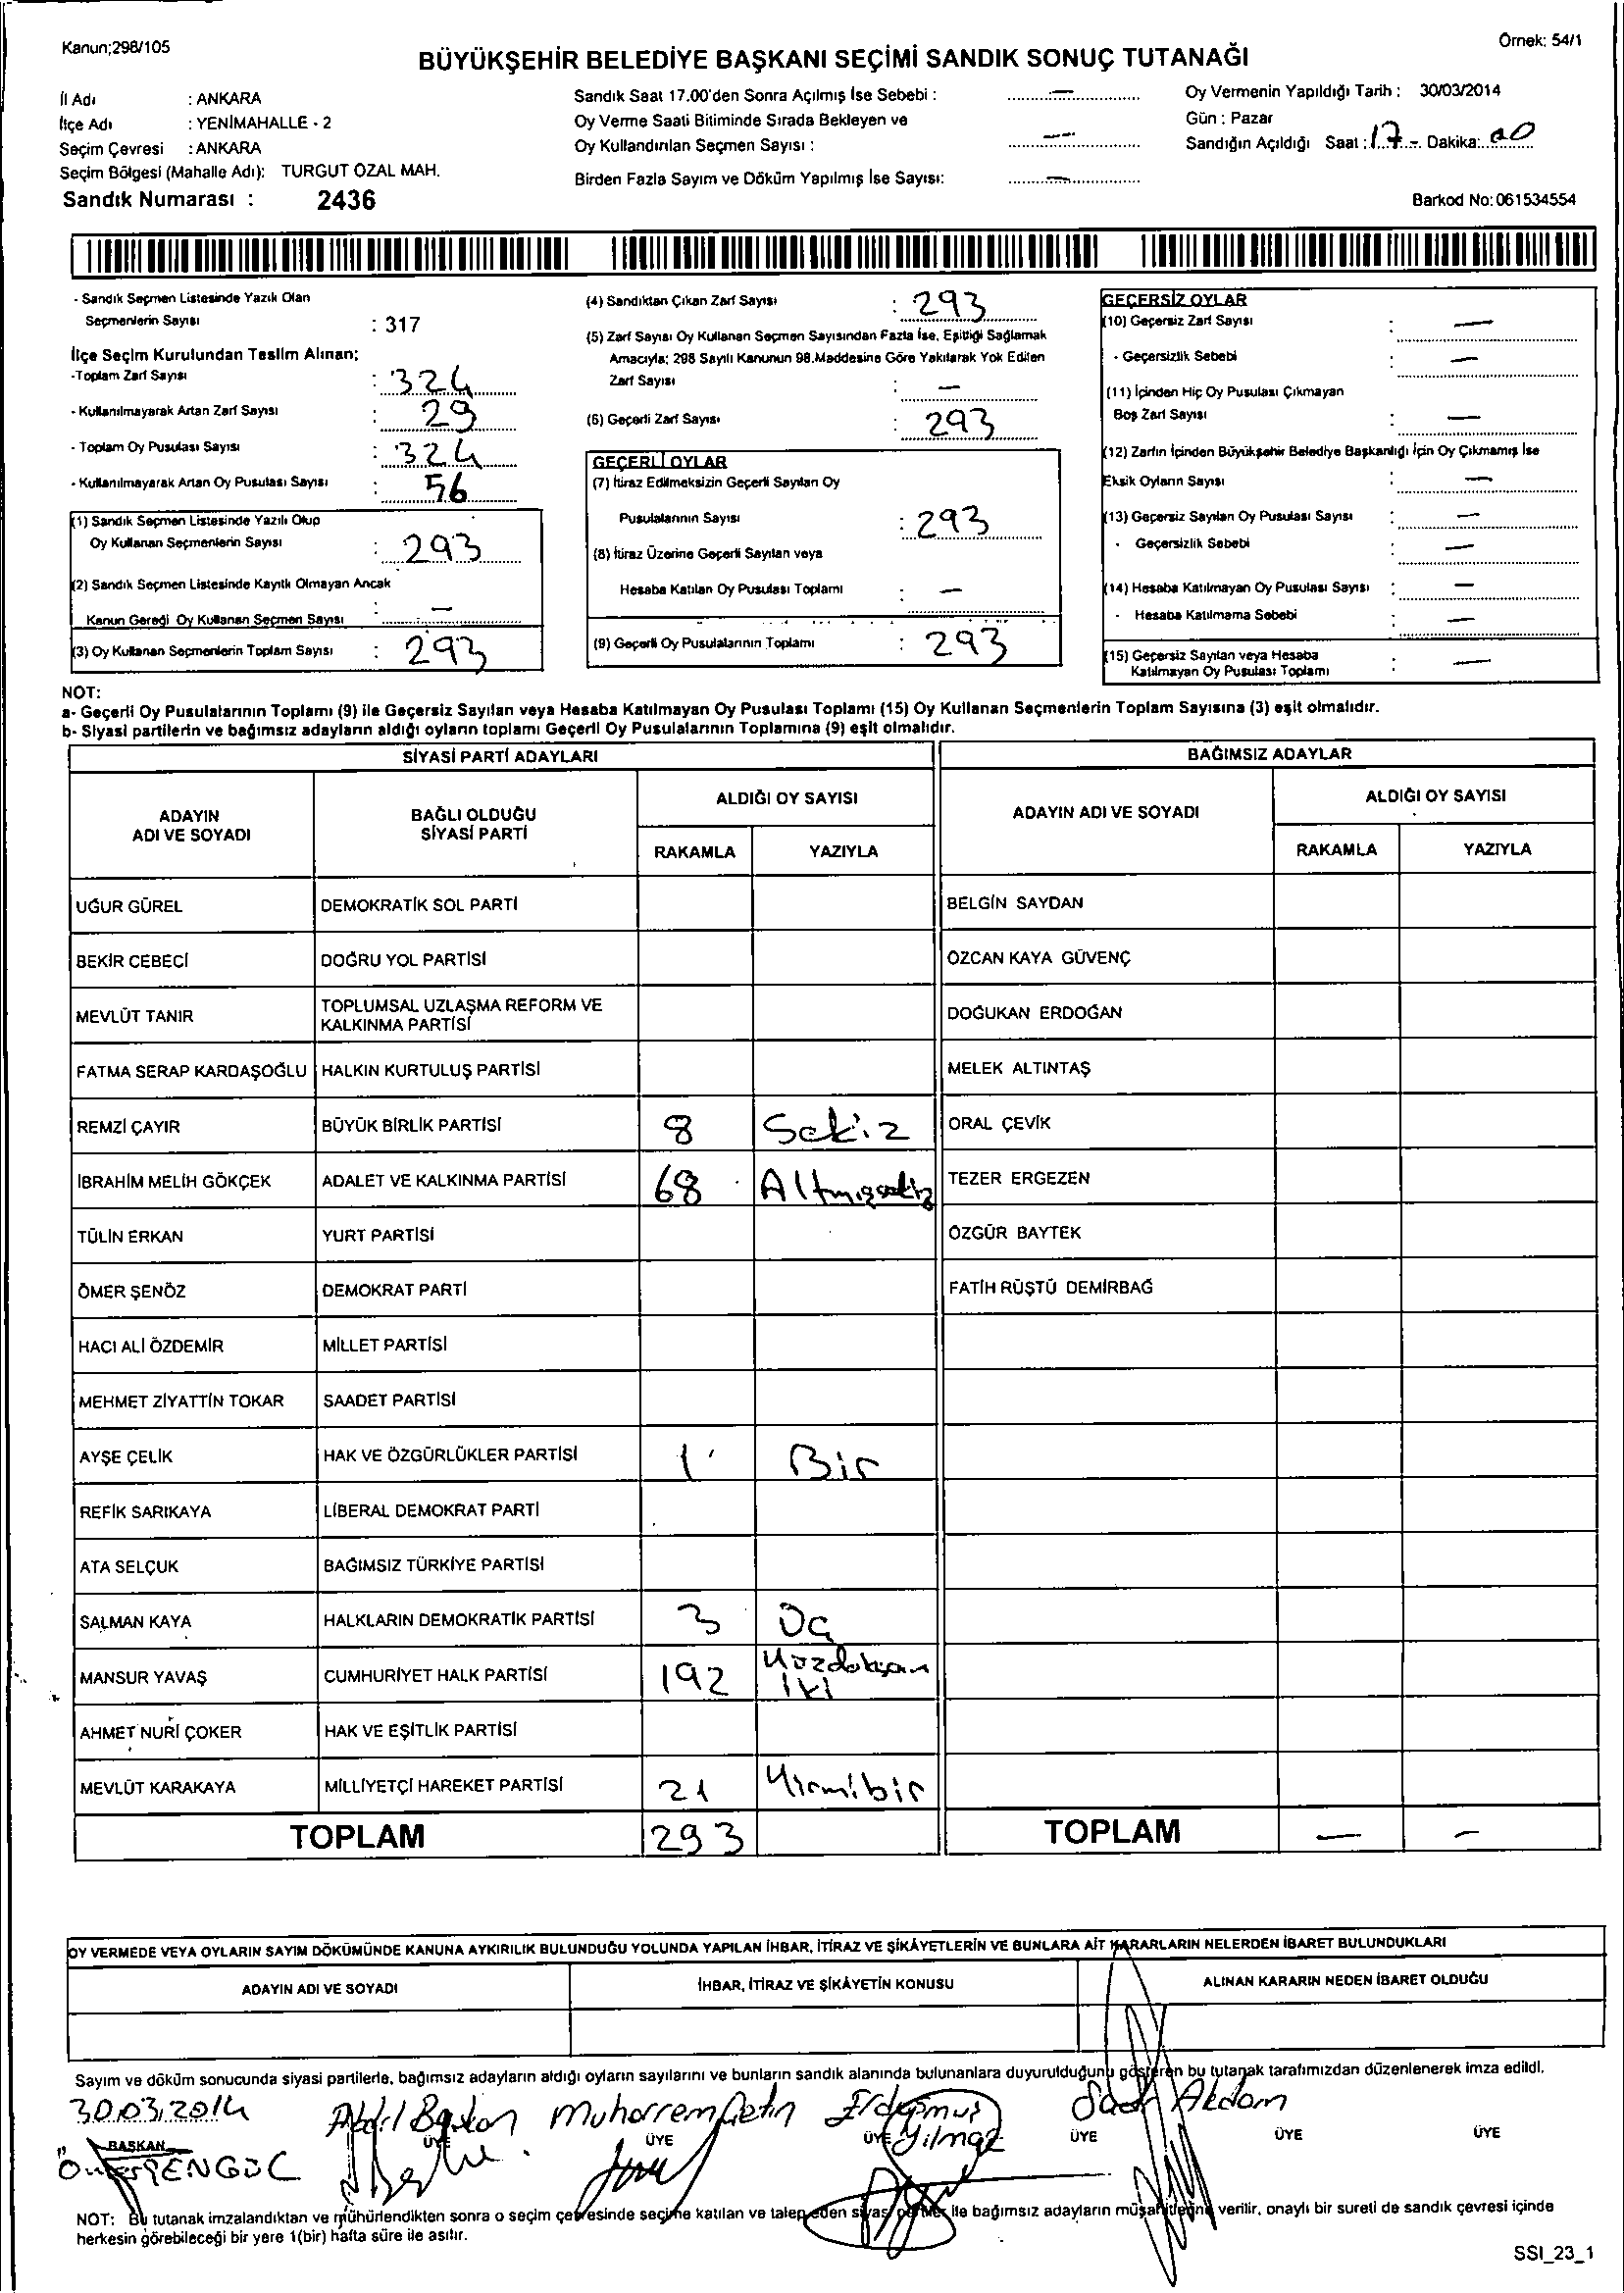 Kanun;298/105
Örnek: 54/1
BÜYÜKŞEHİR BELEDİYE BAŞKANI SEÇİMİ SANDIK SONUÇ TUTANAĞI
İl Adı : ANKARA
İlçe Adı : YENİMAHALLE - 2
Seçim Çevresi : ANKARA
Seçim Bölgesi (Mahalle Adı): TURGUT OZAL MAH.
Sandık Numarası : 2436
Sandık Saat 17.00'den Sonra Açılmış İse Sebebi : —
Oy Verme Saati Bitiminde Sırada Bekleyen ve
Oy Kullandırılan Seçmen Sayısı : —
Birden Fazla Sayım ve Döküm Yapılmış İse Sayısı: —
Oy Vermenin Yapıldığı Tarih : 30/03/2014
Gün : Pazar
Sandığın Açıldığı Saat : 17 Dakika: 00
Barkod No: 061534554
- Sandık Seçmen Listesinde Yazılı Olan
Seçmenlerin Sayısı : 317
İlçe Seçim Kurulundan Teslim Alınan;
-Toplam Zarf Sayısı : 324
- Kullanılmayarak Artan Zarf Sayısı : 29
- Toplam Oy Pusulası Sayısı : 324
- Kullanılmayarak Artan Oy Pusulası Sayısı : 56
(1) Sandık Seçmen Listesinde Yazılı Olup
Oy Kullanan Seçmenlerin Sayısı : 293
(2) Sandık Seçmen Listesinde Kayıtlı Olmayan Ancak
Kanun Gereği Oy Kullanan Seçmen Sayısı : —
(3) Oy Kullanan Seçmenlerin Toplam Sayısı : 293
(4) Sandıktan Çıkan Zarf Sayısı : 293
(5) Zarf Sayısı Oy Kullanan Seçmen Sayısından Fazla İse, Eşitliği Sağlamak
Amacıyla; 298 Sayılı Kanunun 98.Maddesine Göre Yakılarak Yok Edilen
Zarf Sayısı : —
(6) Geçerli Zarf Sayısı : 293
GEÇERLİ OYLAR
(7) İtiraz Edilmeksizin Geçerli Sayılan Oy
Pusulalarının Sayısı : 293
(8) İtiraz Üzerine Geçerli Sayılan veya
Hesaba Katılan Oy Pusulası Toplamı : —
(9) Geçerli Oy Pusulalarının Toplamı : 293
GEÇERSİZ OYLAR
(10) Geçersiz Zarf Sayısı : —
- Geçersizlik Sebebi : —
(11) İçinden Hiç Oy Pusulası Çıkmayan
Boş Zarf Sayısı : —
(12) Zarfın İçinden Büyükşehir Belediye Başkanlığı İçin Oy Çıkmamış İse
Eksik Oyların Sayısı : —
(13) Geçersiz Sayılan Oy Pusulası Sayısı : —
- Geçersizlik Sebebi : —
(14) Hesaba Katılmayan Oy Pusulası Sayısı : —
- Hesaba Katılmama Sebebi : —
(15) Geçersiz Sayılan veya Hesaba
Katılmayan Oy Pusulası Toplamı : —
NOT:
a- Geçerli Oy Pusulalarının Toplamı (9) ile Geçersiz Sayılan veya Hesaba Katılmayan Oy Pusulası Toplamı (15) Oy Kullanan Seçmenlerin Toplam Sayısına (3) eşit olmalıdır.
b- Siyasi partilerin ve bağımsız adayların aldığı oyların toplamı Geçerli Oy Pusulalarının Toplamına (9) eşit olmalıdır.
SİYASİ PARTİ ADAYLARI
BAĞIMSIZ ADAYLAR
ADAYIN ADI VE SOYADI
BAĞLI OLDUĞU SİYASİ PARTİ
ALDIĞI OY SAYISI
RAKAMLA YAZIYLA
ADAYIN ADI VE SOYADI
ALDIĞI OY SAYISI
RAKAMLA YAZIYLA
UĞUR GÜREL DEMOKRATİK SOL PARTİ BELGİN SAYDAN
BEKİR CEBECİ DOĞRU YOL PARTİSİ ÖZCAN KAYA GÜVENÇ
MEVLÜT TANIR TOPLUMSAL UZLAŞMA REFORM VE KALKINMA PARTİSİ DOĞUKAN ERDOĞAN
FATMA SERAP KARDAŞOĞLU HALKIN KURTULUŞ PARTİSİ MELEK ALTINTAŞ
REMZİ ÇAYIR BÜYÜK BİRLİK PARTİSİ 8 Sekiz ORAL ÇEVİK
İBRAHİM MELİH GÖKÇEK ADALET VE KALKINMA PARTİSİ 68 Altmışsekiz TEZER ERGEZEN
TÜLİN ERKAN YURT PARTİSİ ÖZGÜR BAYTEK
ÖMER ŞENÖZ DEMOKRAT PARTİ FATİH RÜŞTÜ DEMİRBAĞ
HACI ALİ ÖZDEMİR MİLLET PARTİSİ
MEHMET ZİYATTİN TOKAR SAADET PARTİSİ
AYŞE ÇELİK HAK VE ÖZGÜRLÜKLER PARTİSİ 1 Bir
REFİK SARIKAYA LİBERAL DEMOKRAT PARTİ
ATA SELÇUK BAĞIMSIZ TÜRKİYE PARTİSİ
SALMAN KAYA HALKLARIN DEMOKRATİK PARTİSİ 3 Üç
MANSUR YAVAŞ CUMHURİYET HALK PARTİSİ 192 Yüzdoksan iki
AHMET NURİ ÇOKER HAK VE EŞİTLİK PARTİSİ
MEVLÜT KARAKAYA MİLLİYETÇİ HAREKET PARTİSİ 21 Yirmibir
TOPLAM 293 TOPLAM — —
OY VERMEDE VEYA OYLARIN SAYIM DÖKÜMÜNDE KANUNA AYKIRILIK BULUNDUĞU YOLUNDA YAPILAN İHBAR, İTİRAZ VE ŞİKÂYETLERİN VE BUNLARA AİT KARARLARIN NELERDEN İBARET BULUNDUKLARI
ADAYIN ADI VE SOYADI İHBAR, İTİRAZ VE ŞİKÂYETİN KONUSU ALINAN KARARIN NEDEN İBARET OLDUĞU
Sayım ve döküm sonucunda siyasi partilerle, bağımsız adayların aldığı oyların sayılarını ve bunların sandık alanında bulunanlara duyurulduğunu gösteren bu tutanak tarafımızdan düzenlenerek imza edildi.
30.03.2014 Muharrem Çetin Akdam
BAŞKAN ÜYE ÜYE ÜYE ÜYE ÜYE ÜYE
Yılmaz
NOT: Bu tutanak imzalandıktan ve mühürlendikten sonra o seçim çevresinde seçime katılan ve talep eden siyasi partiler ile bağımsız adayların müşahitlerine verilir, onaylı bir sureti de sandık çevresi içinde
herkesin görebileceği bir yere 1(bir) hafta süre ile asılır.
SSI_23_1